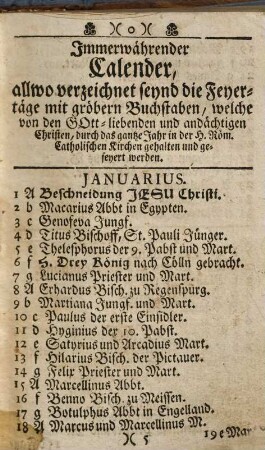 )( o )(
Immerwährender
Calender,
allwo verzeichnet seynd die Feyer-
täge mit gröbern Buchstaben, welche
von den GOtt-liebenden und andächtigen
Christen, durch das gantze Jahr in der H. Röm.
Catholischen Kirchen gehalten und ge-
feyert werden.
JANUARIUS.
1 A Beschneidung JESU Christi.
2 b Macarius Abbt in Egypten.
3 c Genofeva Jungf.
4 d Titus Bischoff, St. Pauli Jünger.
5 e Thelesphorus der 9. Pabst und Mart.
6 f H. Drey König nach Cölln gebracht.
7 g Lucianus Priester und Mart.
8 A Erhardus Bisch. zu Regenspurg.
9 b Martiana Jungf. und Mart.
10 c Paulus der erste Einsidler.
11 d Hyginius der 10. Pabst.
12 e Satyrius und Arcadius Mart.
13 f Hilarius Bisch. der Pictauer.
14 g Felix Priester und Mart.
15 A Marcellinus Abbt.
16 f Benno Bisch. zu Meissen.
17 g Botulphus Abbt in Engelland.
18 A Marcus und Marcellinus M.
)( 5 19 e Mar